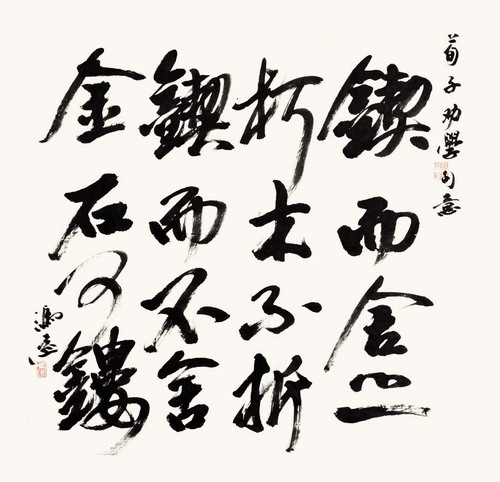 荀子劝學句意
鍥而舍之
朽木不折
鍥而不舍
金石可鏤